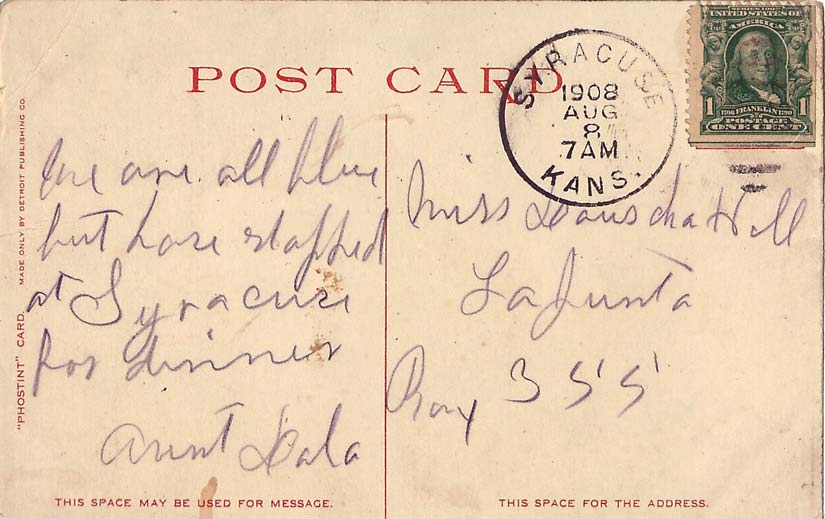 POST CARD
SYRACUSE
1908
AUG
8
7AM
KANS.
SERIES 1902
UNITED STATES OF
AMERICA
1 1
1706 FRANKLIN 1790
POSTAGE
ONE CENT
"PHOSTINT" CARD. MADE ONLY BY DETROIT PUBLISHING CO.
We are all blue
but have stopped
at Syracuse
for dinner
Aunt
Miss Hall
La Junta
Box 355
THIS SPACE MAY BE USED FOR MESSAGE.
THIS SPACE FOR THE ADDRESS.